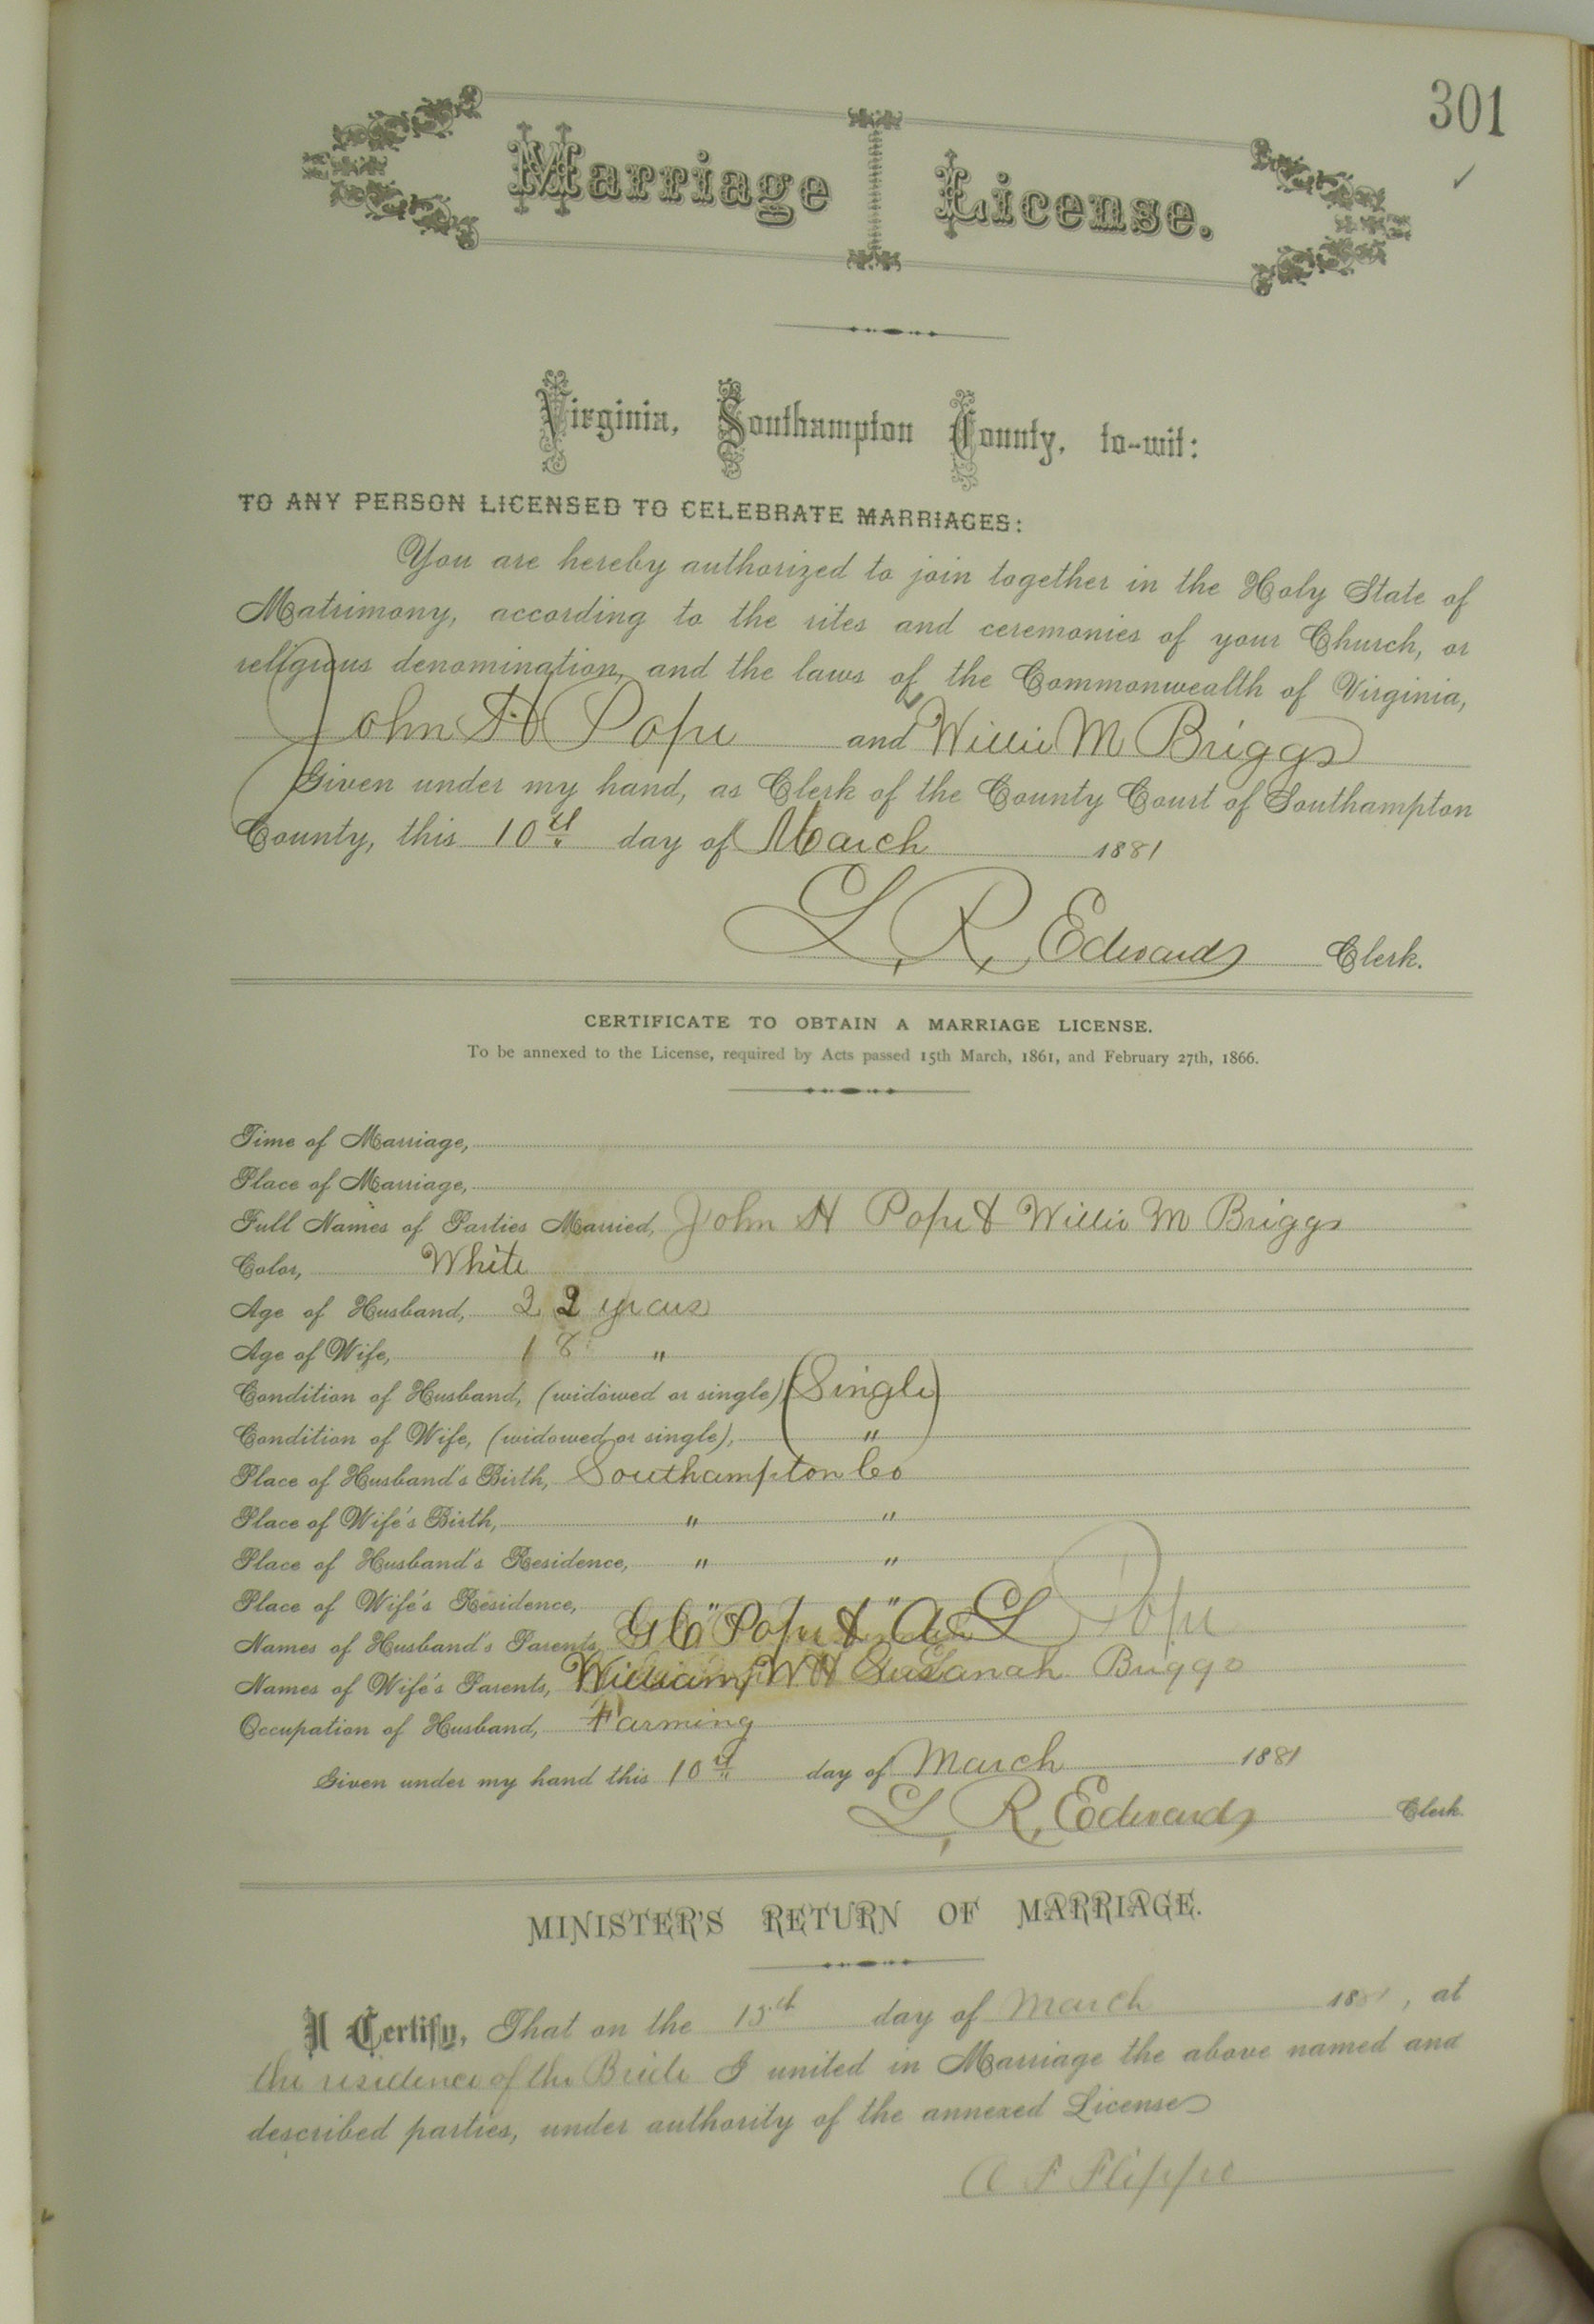 301
Marriage License.
Virginia, Southampton County, to-wit:
TO ANY PERSON LICENSED TO CELEBRATE MARRIAGES:
You are hereby authorized to join together in the Holy State of
Matrimony, according to the rites and ceremonies of your Church, or
religious denomination, and the laws of the Commonwealth of Virginia,
John H Pope and Willie M Briggs
Given under my hand, as Clerk of the County Court of Southampton
County, this 10th day of March 1881
L. R. Edwards Clerk.
CERTIFICATE TO OBTAIN A MARRIAGE LICENSE.
To be annexed to the License, required by Acts passed 15th March, 1861, and February 27th, 1866.
Time of Marriage,
Place of Marriage,
Full Names of Parties Married, John H Pope & Willie M Briggs
Color, White
Age of Husband, 22 years
Age of Wife, 18 "
Condition of Husband, (widowed or single) (Single)
Condition of Wife, (widowed or single), "
Place of Husband's Birth, Southampton Co
Place of Wife's Birth, " "
Place of Husband's Residence, " "
Place of Wife's Residence, " "
Names of Husband's Parents, G C Pope & A L Pope
Names of Wife's Parents, William W H Briggs
Occupation of Husband, Farming
Given under my hand this 10th day of March 1881
L. R. Edwards Clerk.
MINISTER'S RETURN OF MARRIAGE.
I Certify, That on the 15th day of March 1881, at
the residence of the Bride I united in Marriage the above named and
described parties, under authority of the annexed License
A F Flippo